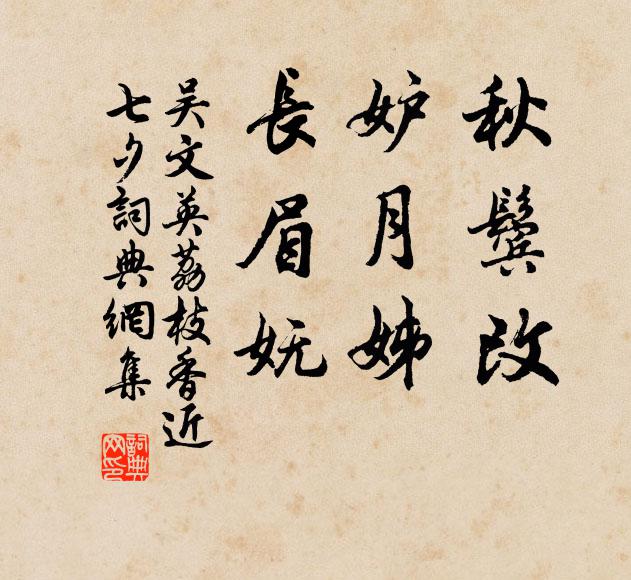 秋鬢改
妒月姊
長眉妩
吴文英荔枝香近
七夕詞典網集
詞典网印